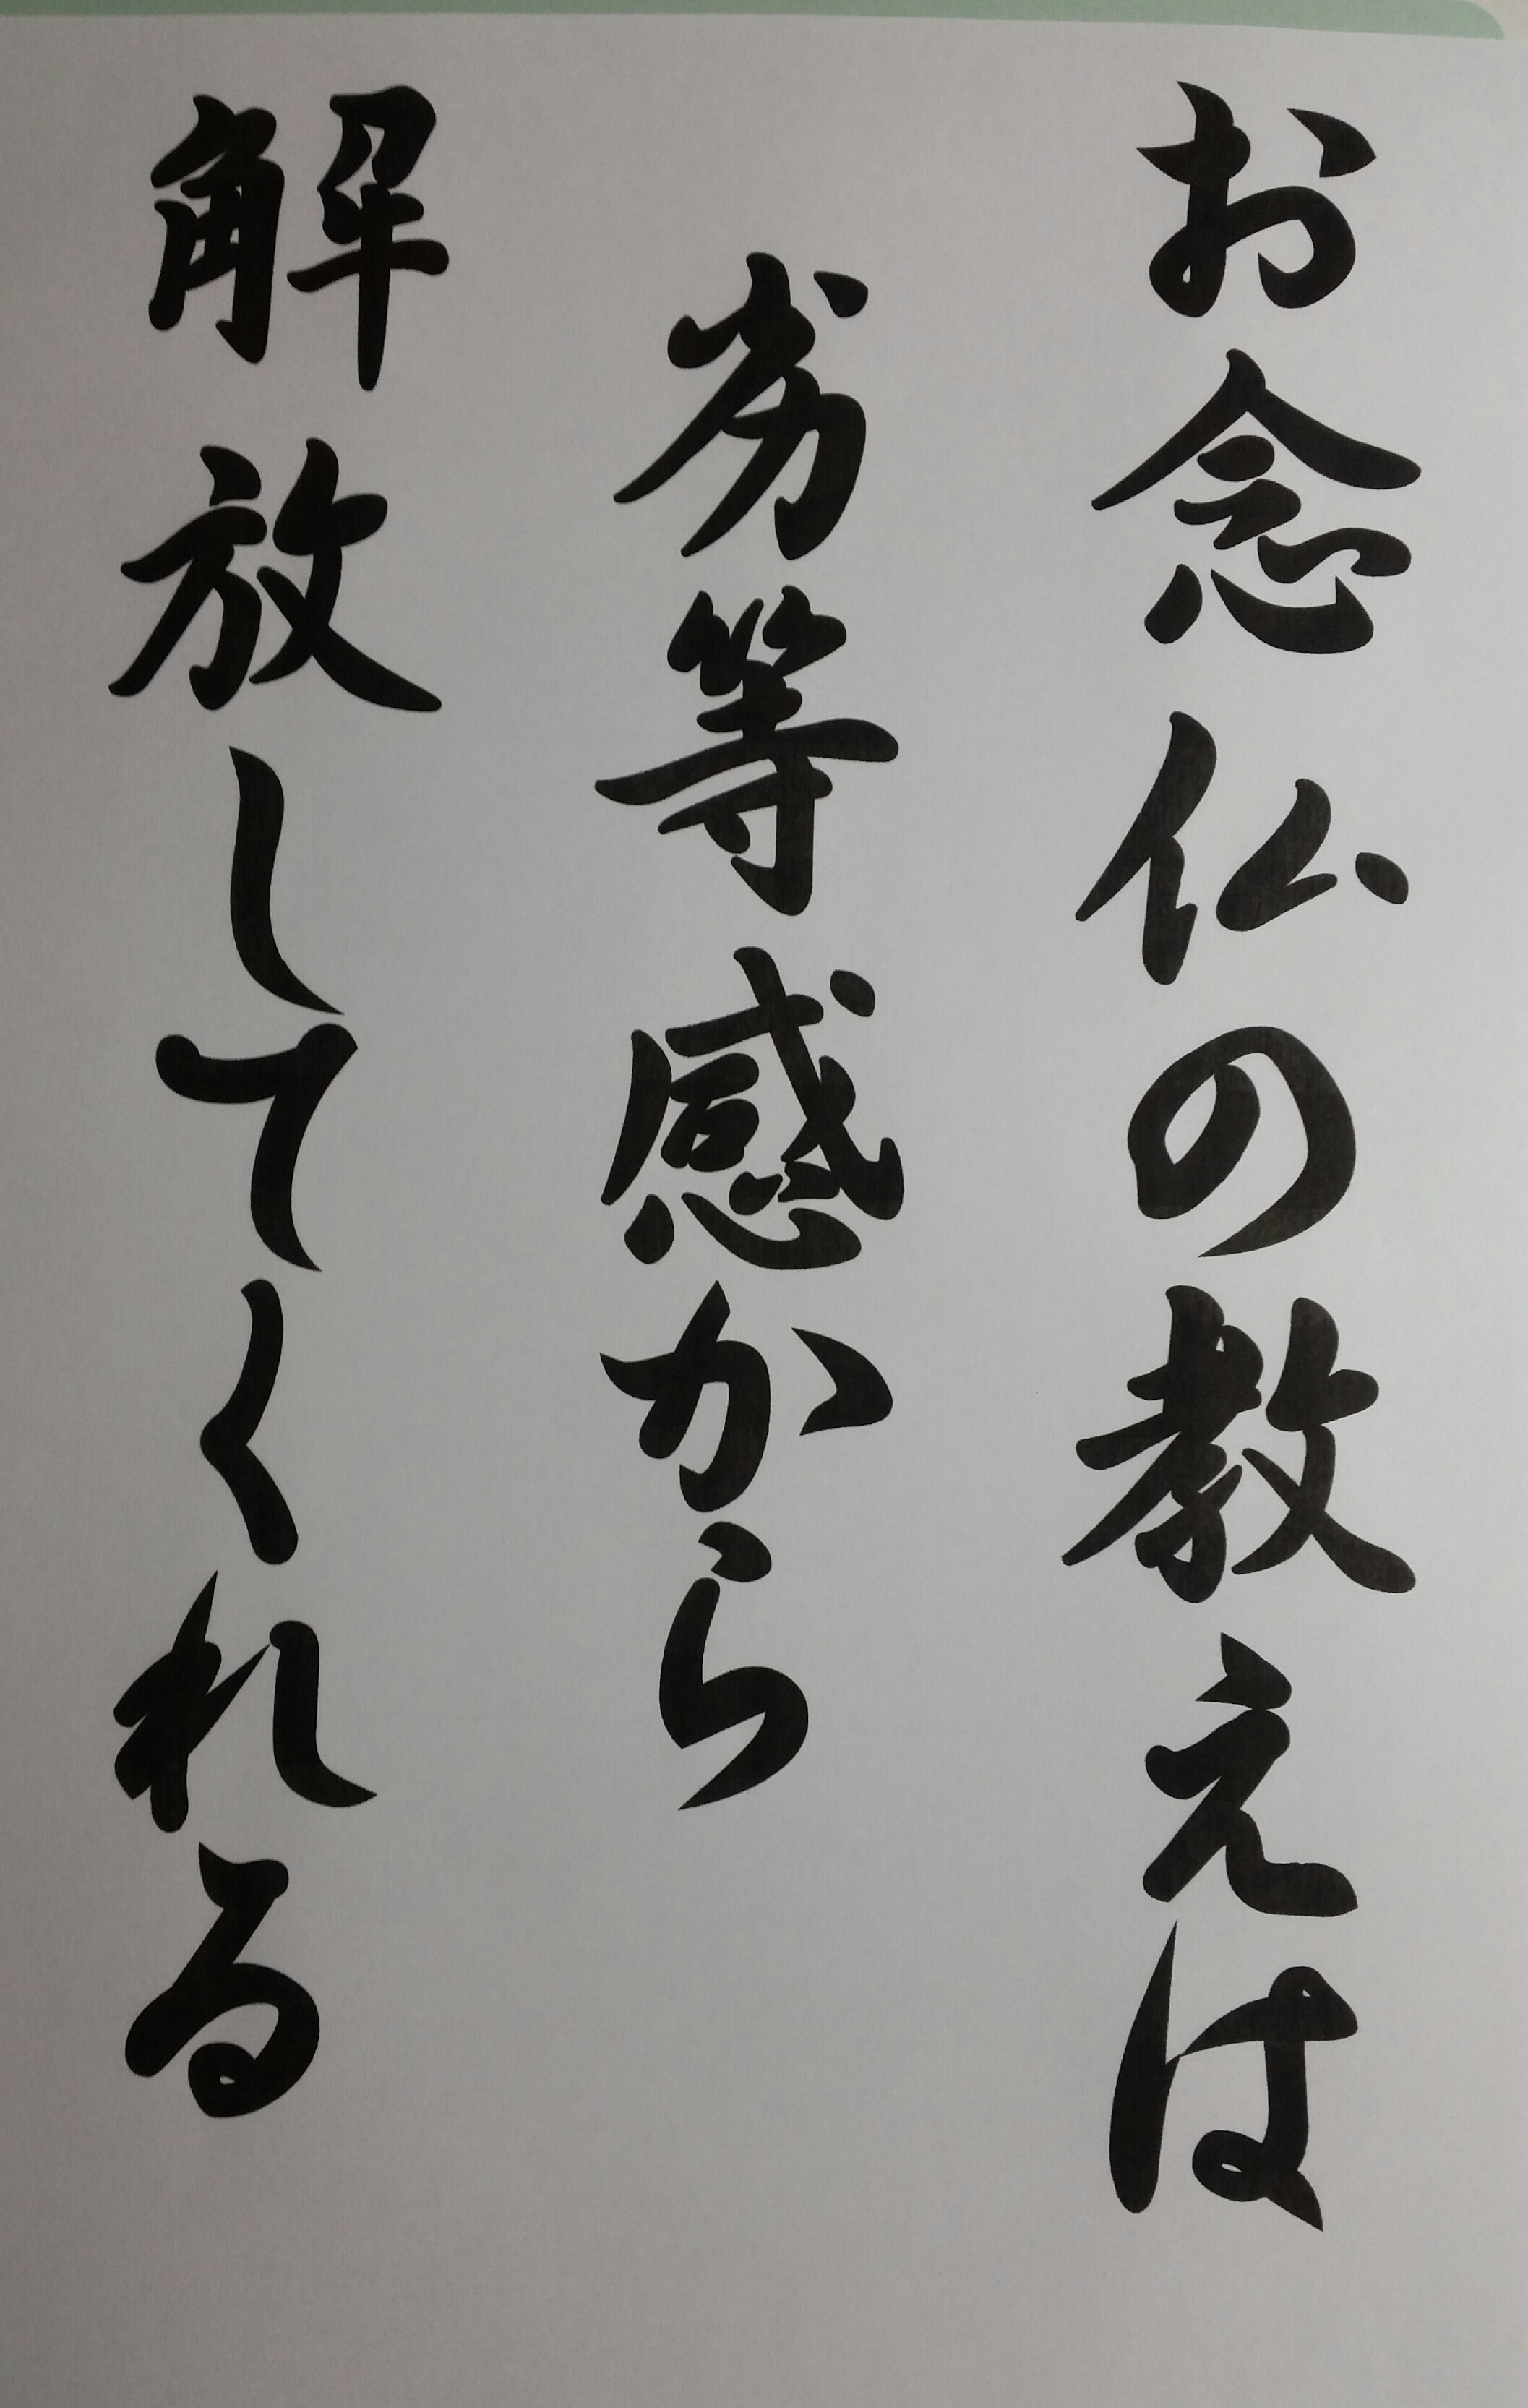 お念仏の教えは
劣等感から
解放してくれる